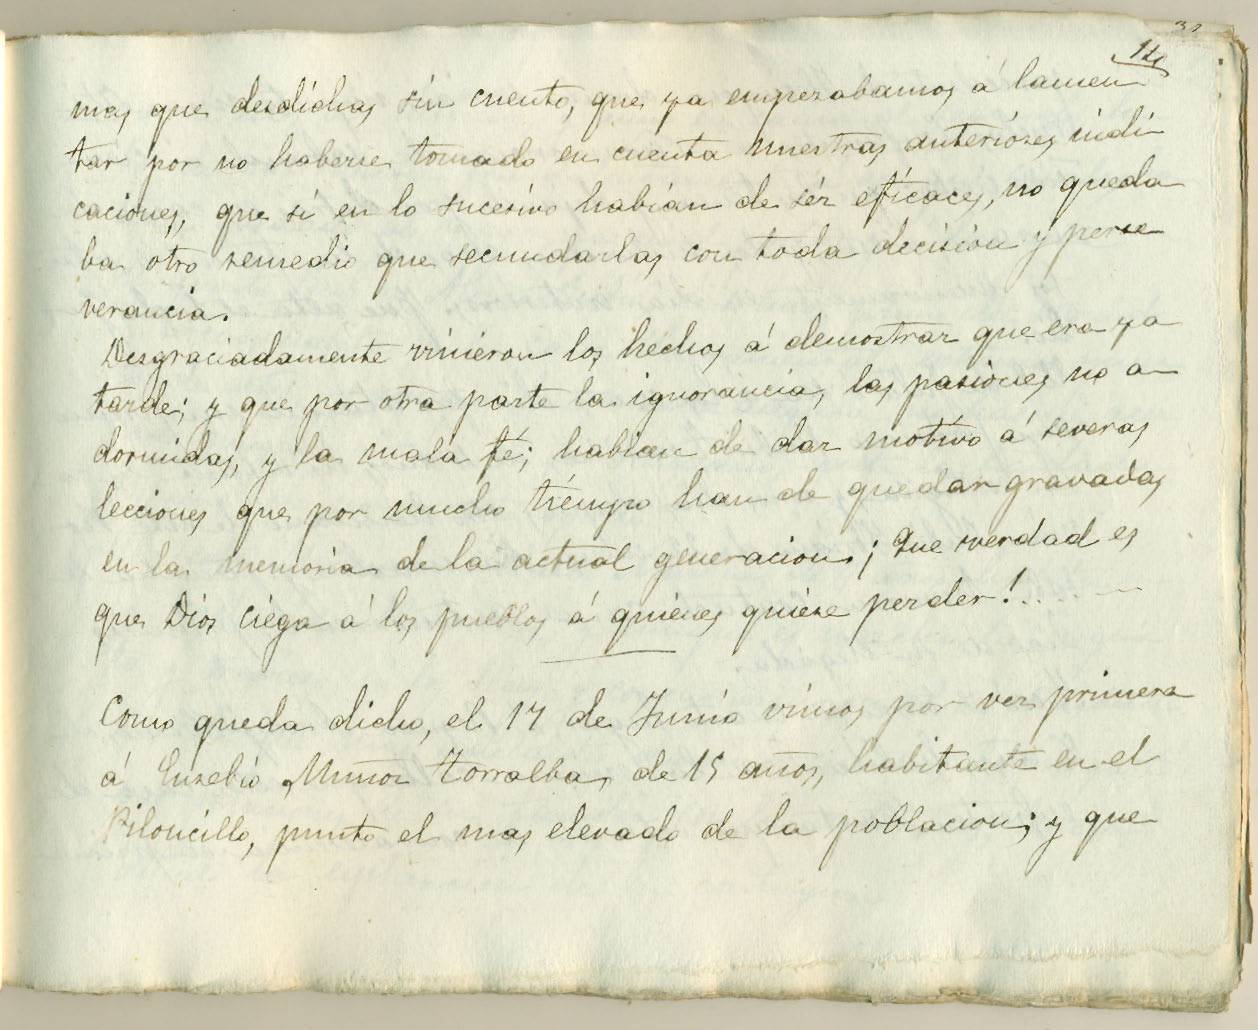 31
14
mas que desdichas sin cuento, que ya empezabamos á lamen
tar por no haberse tomado en cuenta nuestras anteriores indi
caciones, que si en lo sucesivo habian de sér eficaces, no queda
ba otro remedio que secundarlas con toda decision y perse
verancia.
Desgraciadamente vinieron los hechos á demostrar que era ya
tarde; y que por otra parte la ignorancia, las pasiones no a
dormidas, y la mala fé; habian de dar motivo á severas
lecciones que por mucho tiempo han de quedar gravadas
en la memoria de la actual generacion. ¡Que verdad es
que Dios ciega á los pueblos á quienes quiere perder!......
Como queda dicho, el 17 de Junio vimos por vez primera
á Eusebio Muñoz Torralba, de 15 años, habitante en el
Piloncillo, punto el mas elevado de la poblacion; y que